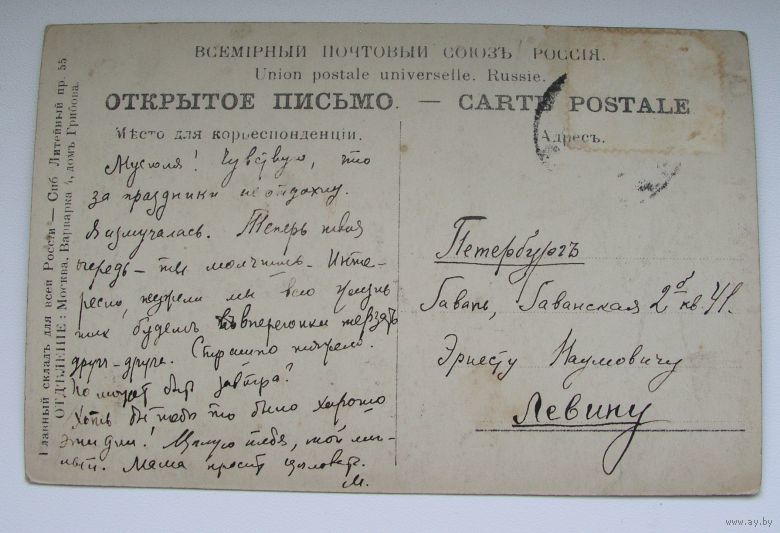 ВСЕМІРНЫЙ ПОЧТОВЫЙ СОЮЗЪ РОССІЯ.
Union postale universelle. Russie.
ОТКРЫТОЕ ПИСЬМО. — CARTE POSTALE
Мѣсто для корреспонденціи.
Адресъ.
Главный складъ для всей Россіи — Спб Литейный пр. 55
ОТДѢЛЕНІЕ: Москва, Варварка 4, домъ Грибова.
Мусюля! Чувствую, что
за праздники не отдохну.
Я измучалась. Теперь твоя
очередь — ты молчишь. Инте-
ресно, неужели мы всю жизнь
так будем вперегонки терзать
друг-друга. Страшно
Но может быт завтра?
Хоть бы тебѣ то было хорошо
эти дни! Цѣлую тебя, мой ми-
лый. Мама просит цѣловать.
М.
Петербургъ
Гавань, Гаванская 2б кв. 41.
Эрнесту Наумовичу
Левину
www.ay.by